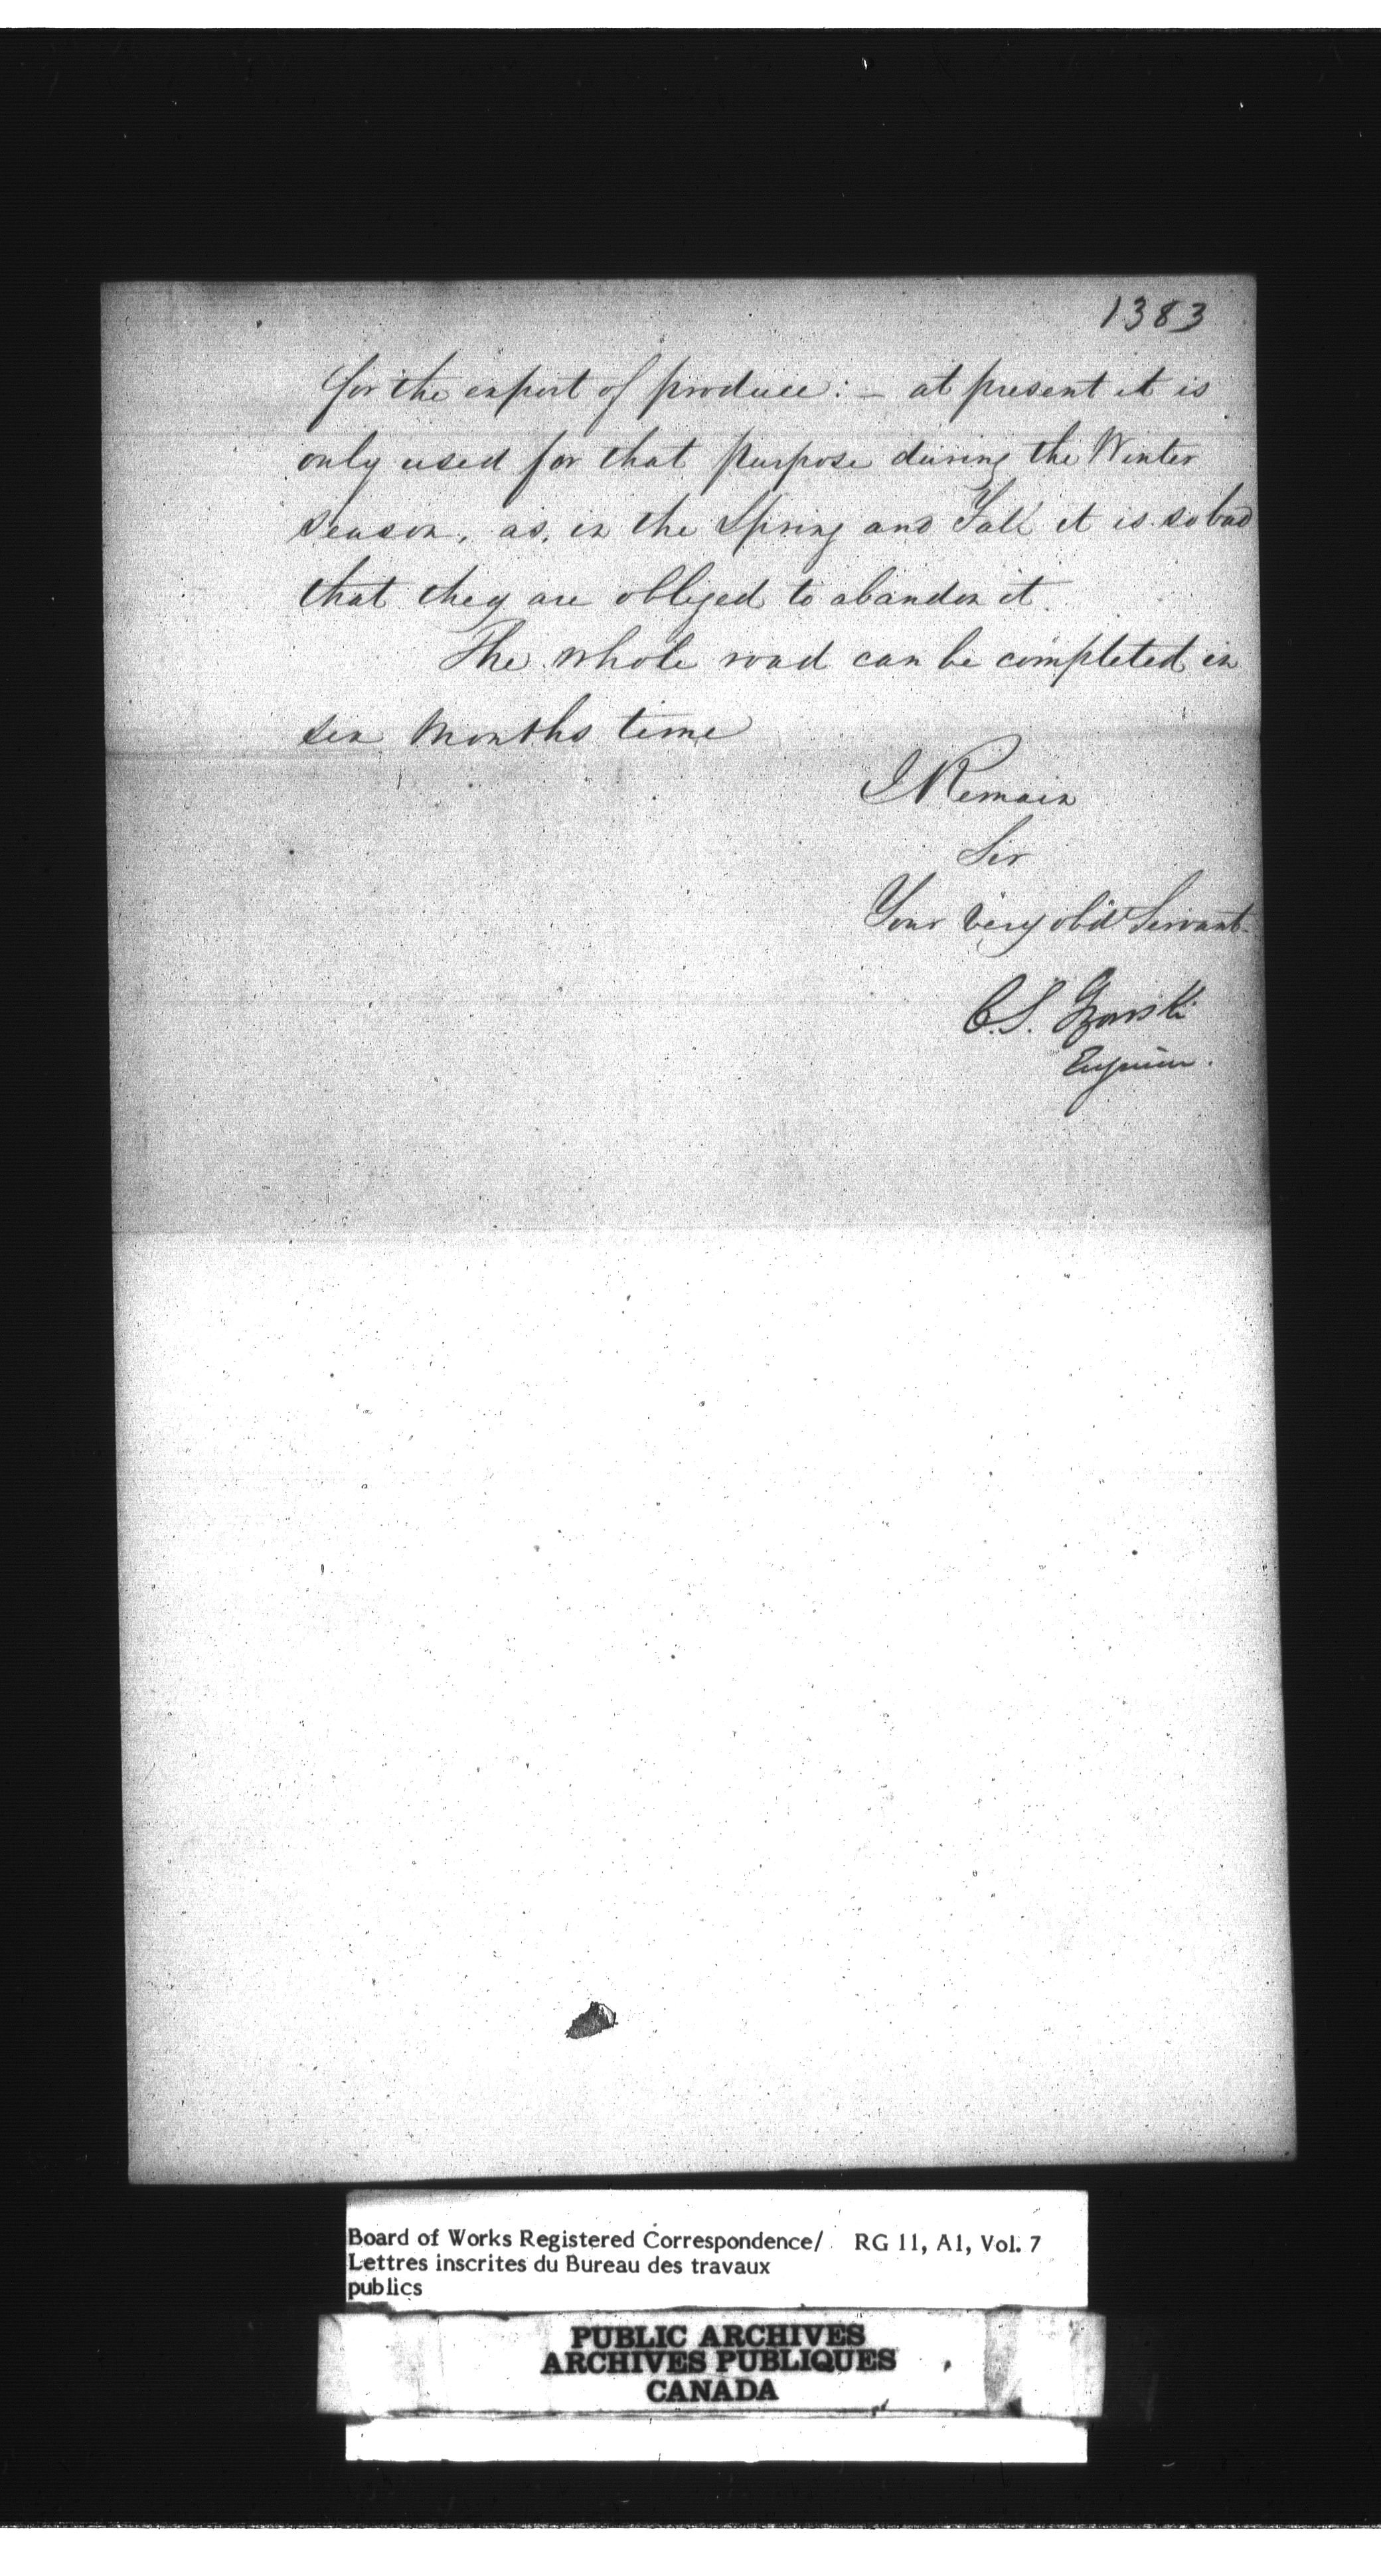 1383
for the export of produce: — at present it is
only used for that purpose during the Winter
season, as, in the Spring and Fall it is so bad
that they are obliged to abandon it.
The whole road can be completed in
six Months time
I Remain
Sir
Your very obdt Servant
C.S. Gzowski
Engineer.
Board of Works Registered Correspondence/ RG 11, A1, Vol. 7
Lettres inscrites du Bureau des travaux
publics
PUBLIC ARCHIVES
ARCHIVES PUBLIQUES
CANADA